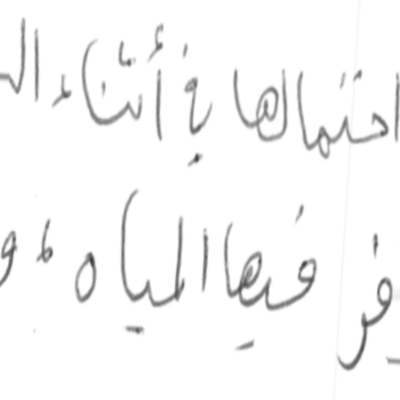 احتمالها في أثناء الـ
فر فيها المياه، و